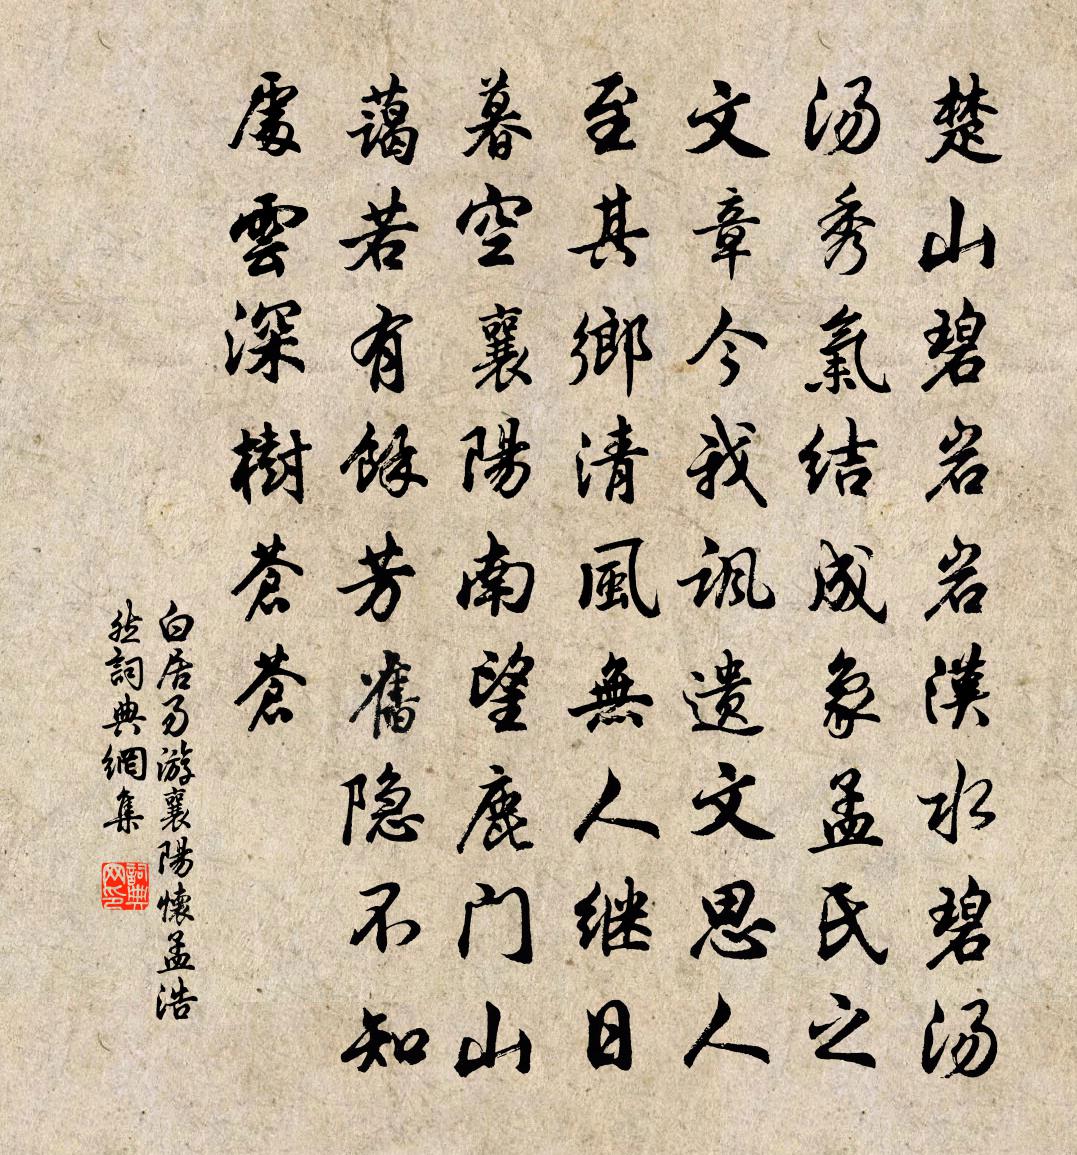 楚山碧岩岩漢水碧湯
湯秀氣結成象孟氏之
文章今我諷遺文思人
至其鄉清風無人继日
暮空襄陽南望鹿门山
藹若有餘芳舊隐不知
處雲深樹蒼蒼
白居易游襄陽懷孟浩
然詞典網集
詞典
网印